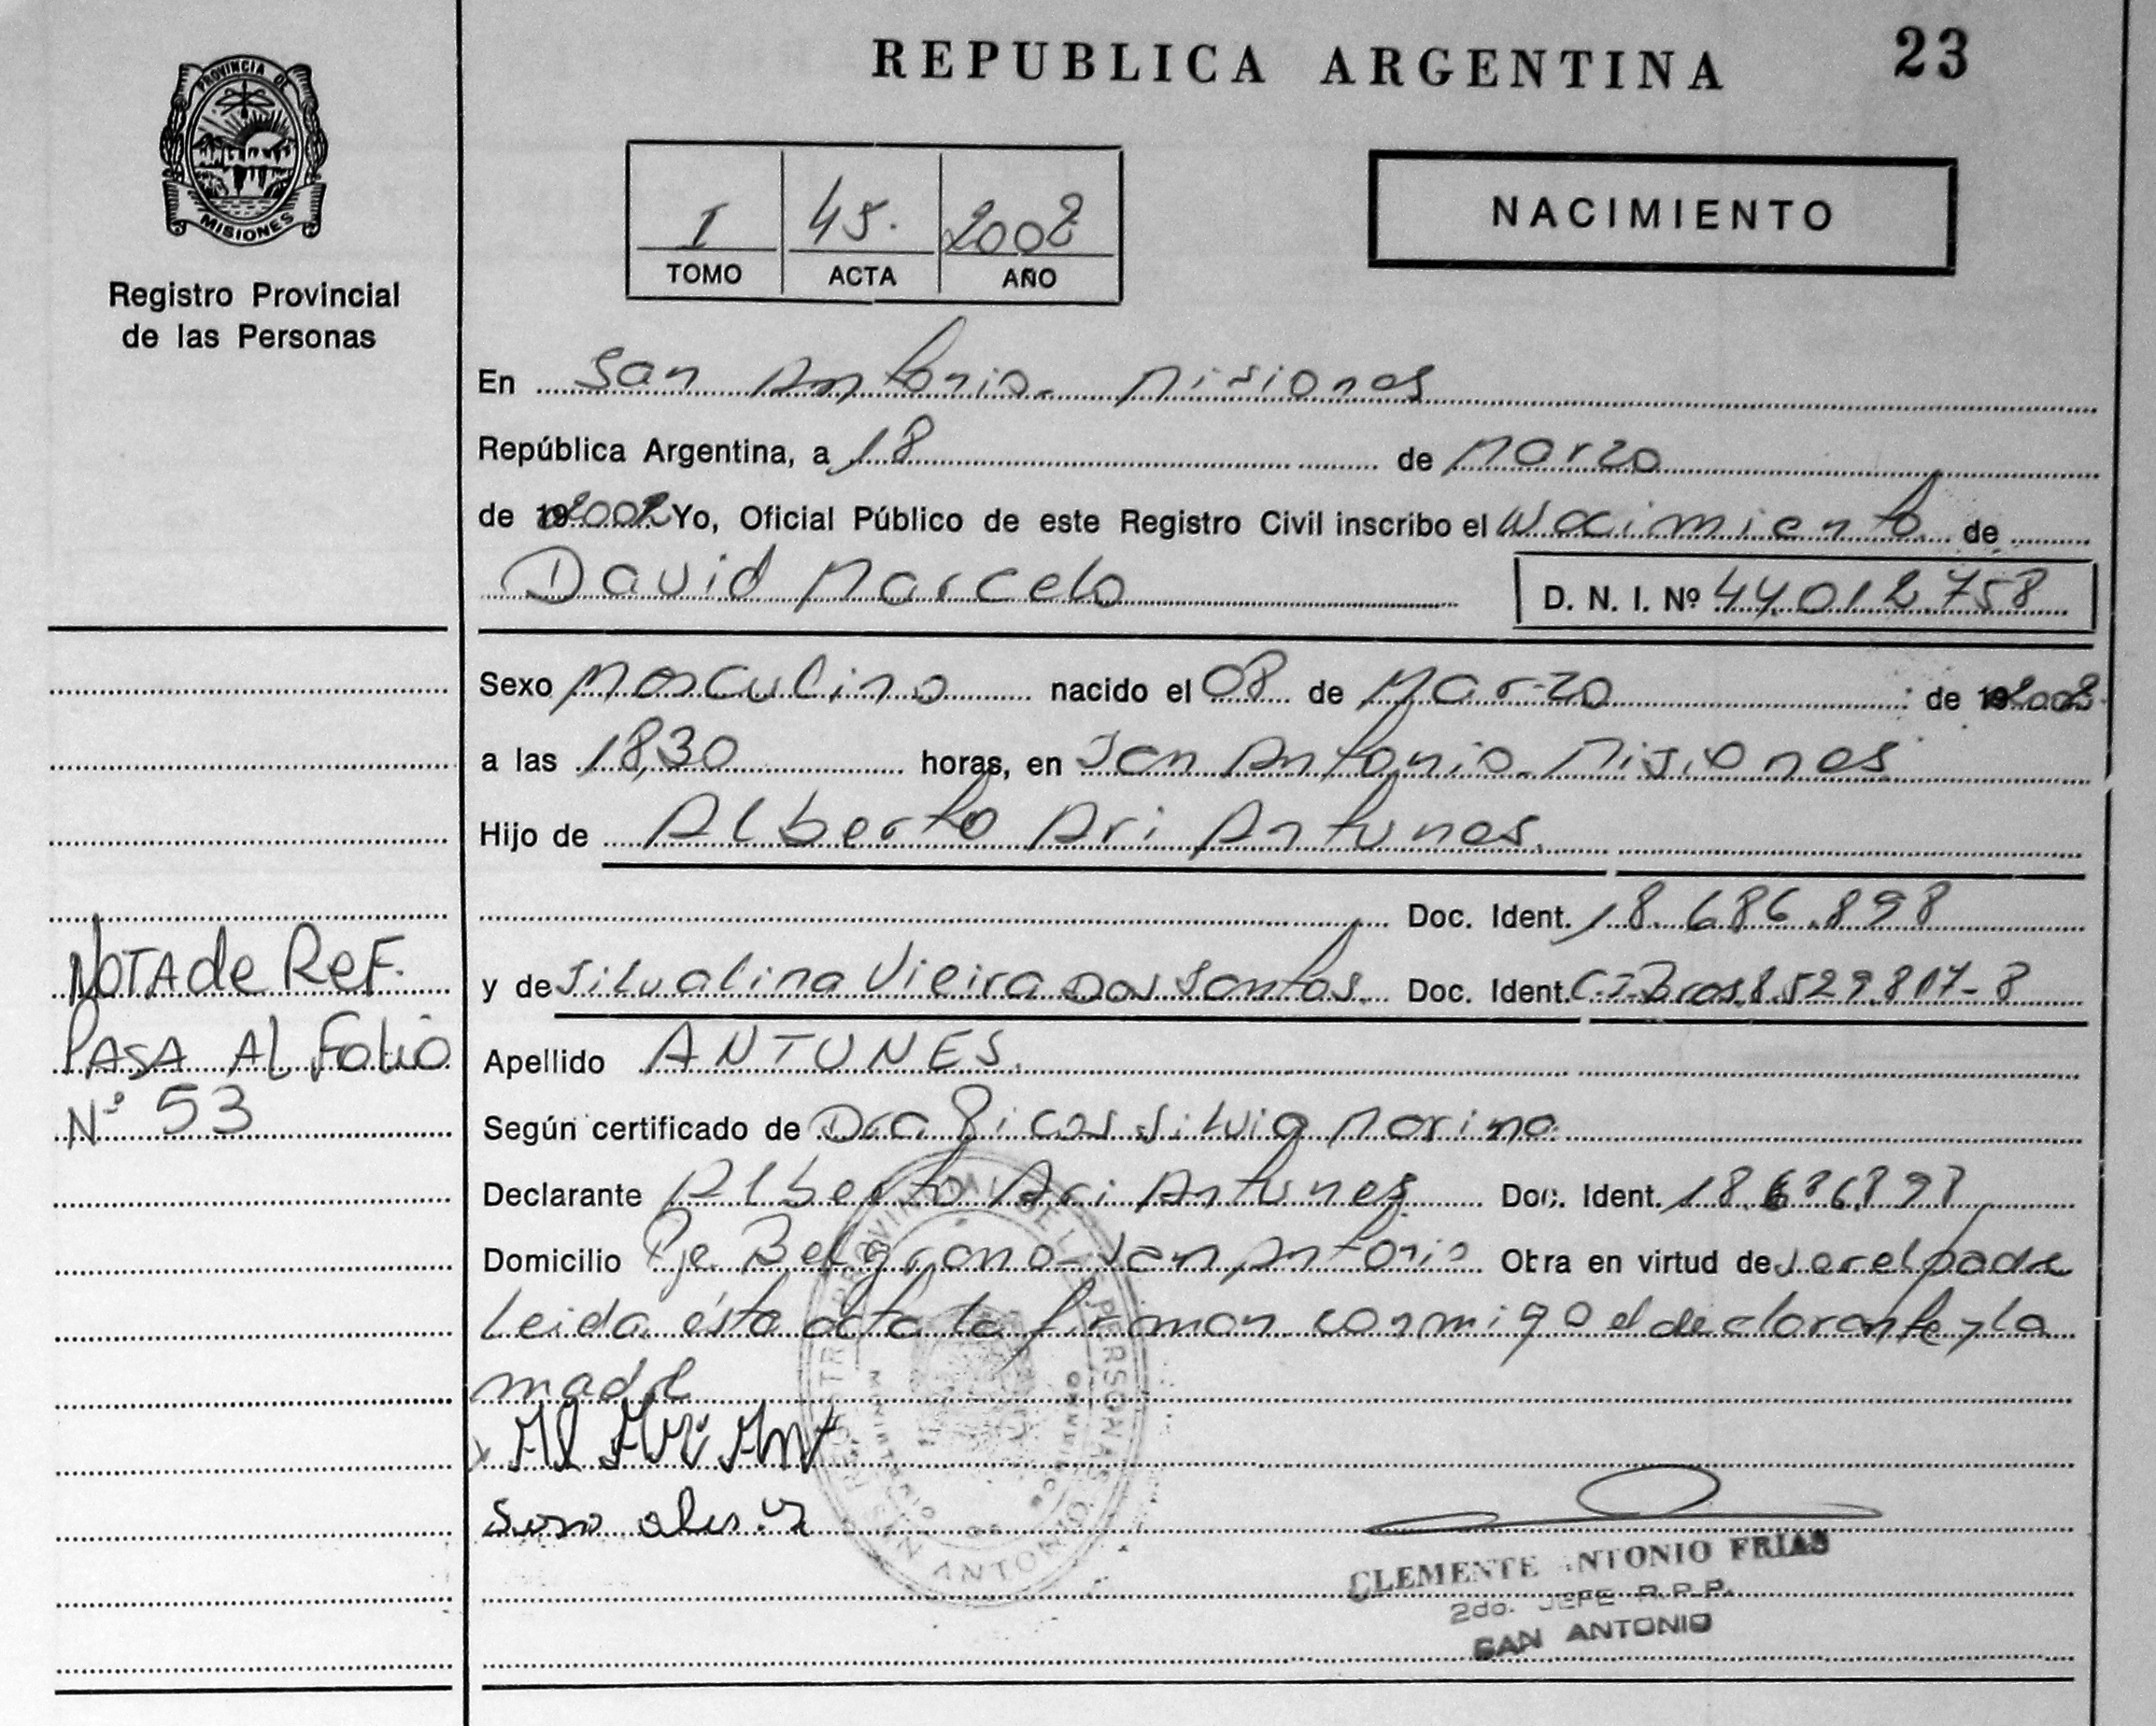 REPUBLICA ARGENTINA 23
PROVINCIA DE
MISIONES
Registro Provincial
de las Personas
I 45. 2002
TOMO ACTA AÑO
NACIMIENTO
En San Antonio - Misiones
República Argentina, a 18 de Marzo
de 192002 Yo, Oficial Público de este Registro Civil inscribo el Nacimiento de
David Marcelo D. N. I. Nº 44.012.758
Sexo Masculino nacido el 08 de Marzo de 192002
a las 18,30 horas, en San Antonio - Misiones
Hijo de Alberto Ari Antunes.
Doc. Ident. 18.686.898
y de Silvalina Vieira Dos Santos. Doc. Ident. C.I.Bras.8.529.817-8
Apellido ANTUNES.
Según certificado de Dra Silvia Marina
Declarante Alberto Ari Antunes Doc. Ident. 18.686.898
Domicilio Pje. Belgrano - San Antonio Obra en virtud de ser el padre
Leida ésta acta la firman conmigo el declarante y la
madre
NOTA de ReF.
PASA AL Folio
Nº 53
REGISTRO PROVINCIAL DE LAS PERSONAS
SAN ANTONIO
CLEMENTE ANTONIO FRIAS
2do. JEFE R.P.P.
SAN ANTONIO